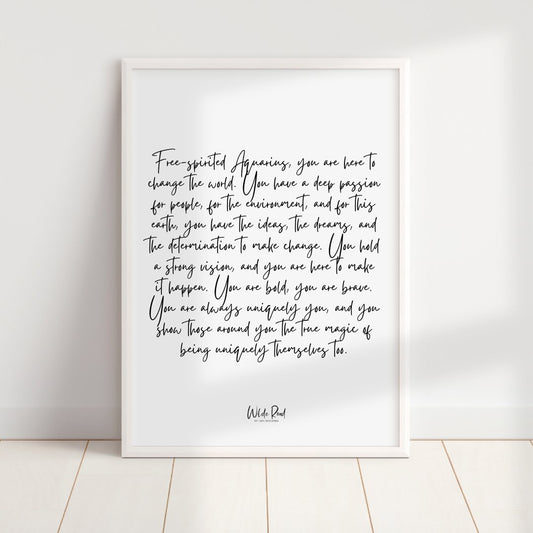 Free-spirited Aquarius, you are here to
change the world. You have a deep passion
for people, for the environment, and for this
earth, you have the ideas, the dreams, and
the determination to make change. You hold
a strong vision, and you are here to make
it happen. You are bold, you are brave.
You are always uniquely you, and you
show those around you the true magic of
being uniquely themselves too.